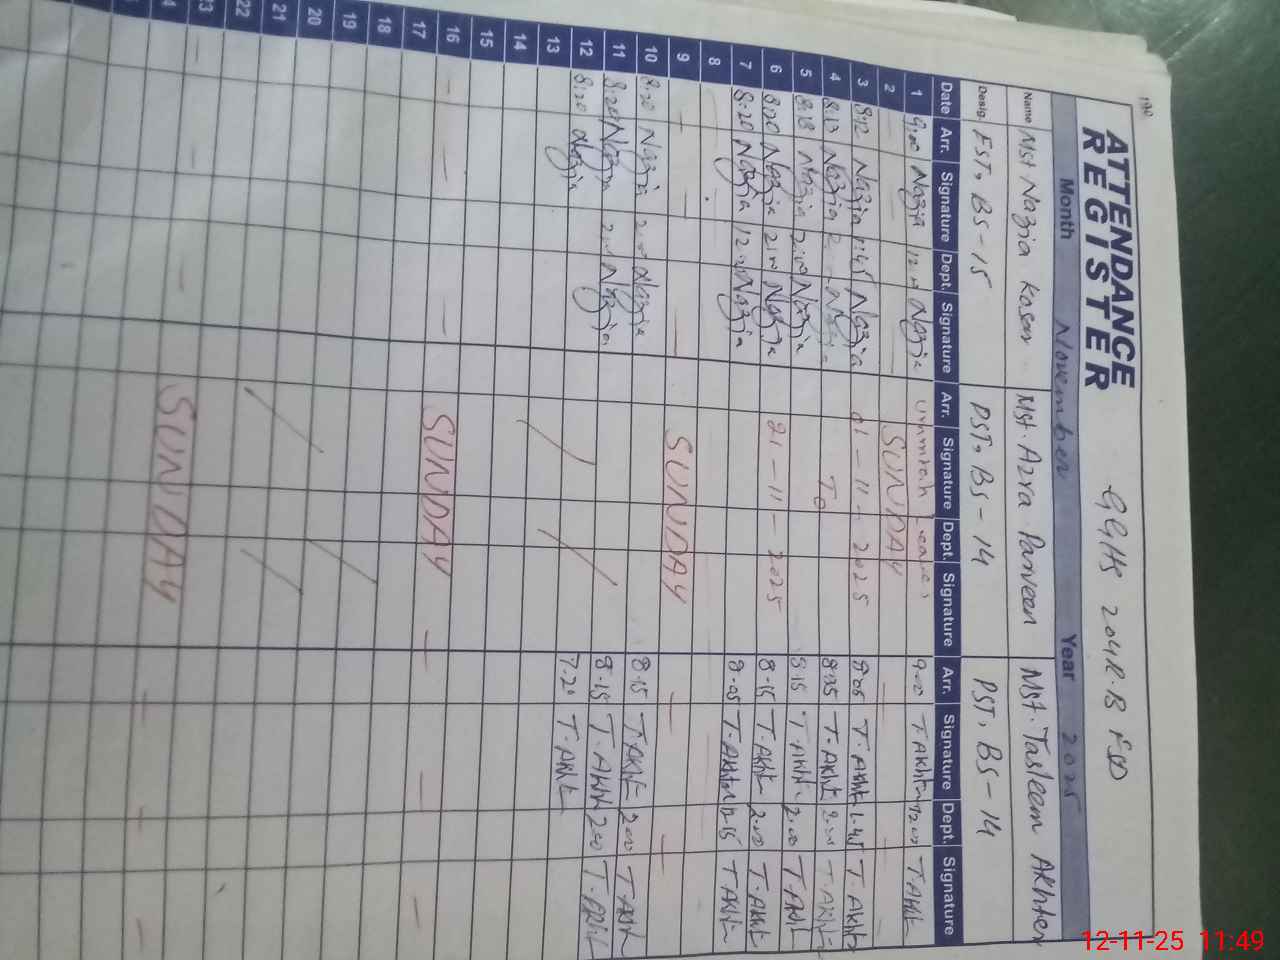 190
ATTENDANCE REGISTER
GGHS 204 R.B FSD
Month November Year 2025
Name Mst. Nazia Kosar Mst. Azra Parveen Mst. Tasleem Akhter
Desig. EST. BS-15 PST. BS-14 PST. BS-14
Date Arr. Signature Dept. Signature Arr. Signature Dept. Signature Arr. Signature Dept. Signature
1 9:00 Nazia Nazia 9:00 T.Akht 12:00 T.Akht
2 SUNDAY
3 8:12 Nazia 1:45 Nazia 01-11-2025 T.Akht 1:45 T.Akht
4 8:13 Nazia Nazia To T.Akht 2:00 T.Akht
5 8:18 Nazia 2:00 Nazia 8:15 T.Akht 2:00 T.Akht
6 8:20 Nazia 2:00 Nazia 21-11-2025 8:15 T.Akht 2:00 T.Akht
7 8:20 Nazia 12:00 Nazia 8:05 T.Akht 12:15 T.Akht
8
9 SUNDAY
10 8:20 Nazia 2:00 Nazia 8:15 T.Akht 2:00 T.Akht
11 8:20 Nazia 2:00 Nazia 8:15 T.Akht 2:00 T.Akht
12 8:20 Nazia 7:20 T.Akht
13
14
15
16 SUNDAY
17
18
19
20
21
22
23 SUNDAY
12-11-25 11:49